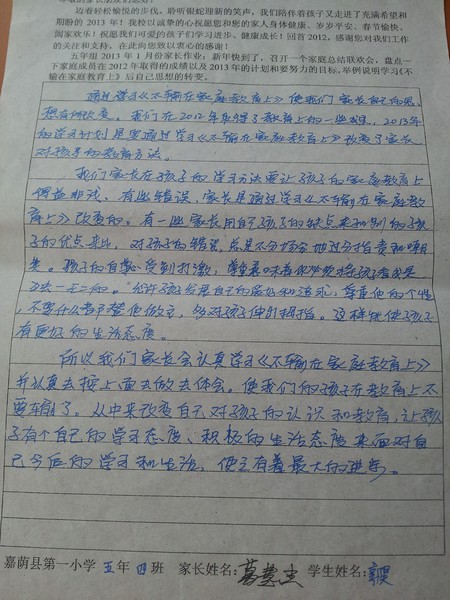 迈着轻松愉悦的步伐，聆听银蛇迎新的笑声，我们陪伴着孩子又走进了充满希望和
期盼的 2013 年！我校以诚挚的心祝愿您和您的家人身体健康、岁岁平安、春节愉快、
阖家欢乐！祝愿我们可爱的孩子们学习进步、健康成长！回首 2012，感谢您对我们工作
的关注和支持，在此向您致以衷心的感谢！
五年组 2013 年 1 月份家长作业：新年快到了，召开一个家庭总结联欢会，盘点一
下家庭成员在 2012 年取得的成绩以及 2013 年的计划和要努力的目标，举例说明学习《不
输在家庭教育上》后自己思想的转变。
通过学习《不输在家庭教育上》使我们家长自己的思
想有所改变。我们在2012年取得了教育上的一些成果，2013年
的学习计划是要通过学习《不输在家庭教育上》改变了家长
对孩子的教育方法。
我们家长在孩子的学习方法要让孩子的家庭教育上
有些错误，家长是通过学习《不输在家庭教
育上》改变的。有一些家长用自己孩子的缺点来和别的孩
子的优点来比，对孩子的错误总是不分场合地过分指责和
孩子的自尊心受到打激，
允许孩子发展自己的爱好和追求，尊重他的个性，
不要什么都替他做主，多对孩子伸出拇指。这样能使孩子
有更好的生活态度。
所以我们家长会认真学习《不输在家庭教育上》
并认真去按上面去做去体会。使我们的孩子在教育上不
要输了。从中来改变自己对孩子的认识和教育，让孩
子有个自己的学习态度、积极的生活态度来面对自
己今后的学习和生活，使之有着最大的进步。
嘉荫县第一小学 五 年 四 班 家长姓名：葛慧杰 学生姓名：